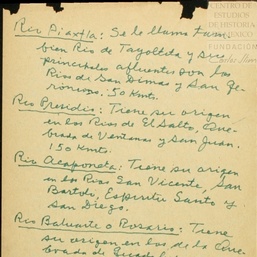 CENTRO DE
ESTUDIOS
DE HISTORIA
DE MÉXICO
FUNDACIÓN
Carlos Slim
Rio Piaxtla: Se le llama tam-
bien Rio de Tayoltita y sus
principales afluentes son los
Rios de San Dimas y San Ge-
ronimo. 50 Kmts.
Rio Presidio: Tiene su origen
en los Rios de El Salto, Que-
brada de Ventanas y San Juan.
150 Kmts.
Rio Acaponeta: Tiene su origen
en los Rios San Vicente, San
Bartolo, Espiritu Santo y
San Diego.
Rio Baluarte o Rosario: Tiene
su origen en los de la Que-
brada de